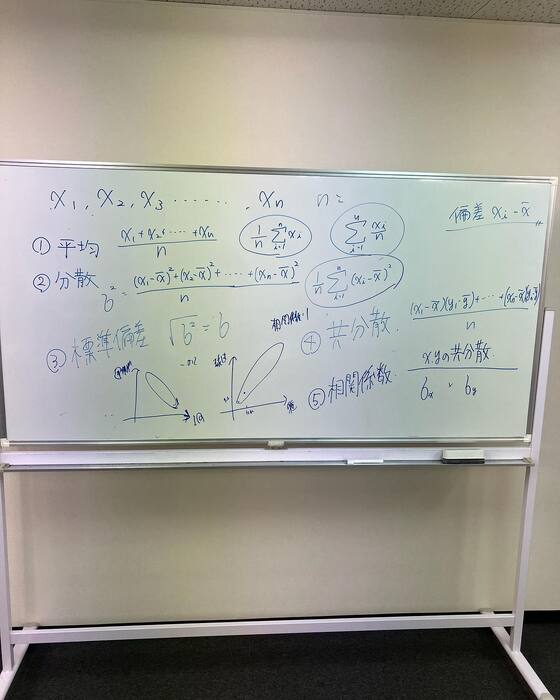 x₁, x₂, x₃ ‥‥‥, xₙ n =
偏差 xᵢ - x̄
① 平均 (x₁ + x₂ + ‥‥ + xₙ) / n
1/n Σ[i=1→n] xᵢ
Σ[i=1→n] xᵢ/n
② 分散 б² = ((x₁ - x̄)² + (x₂ - x̄)² + ‥‥ + (xₙ - x̄)²) / n
1/n Σ[i=1→n] (xᵢ - x̄)²
③ 標準偏差 √б² = б
④ 共分散. ((x₁ - x̄)(y₁ - ȳ) + ‥‥ + (xₙ - x̄)(yₙ - ȳ)) / n
⑤ 相関係数. x.yの共分散. / бx · бy